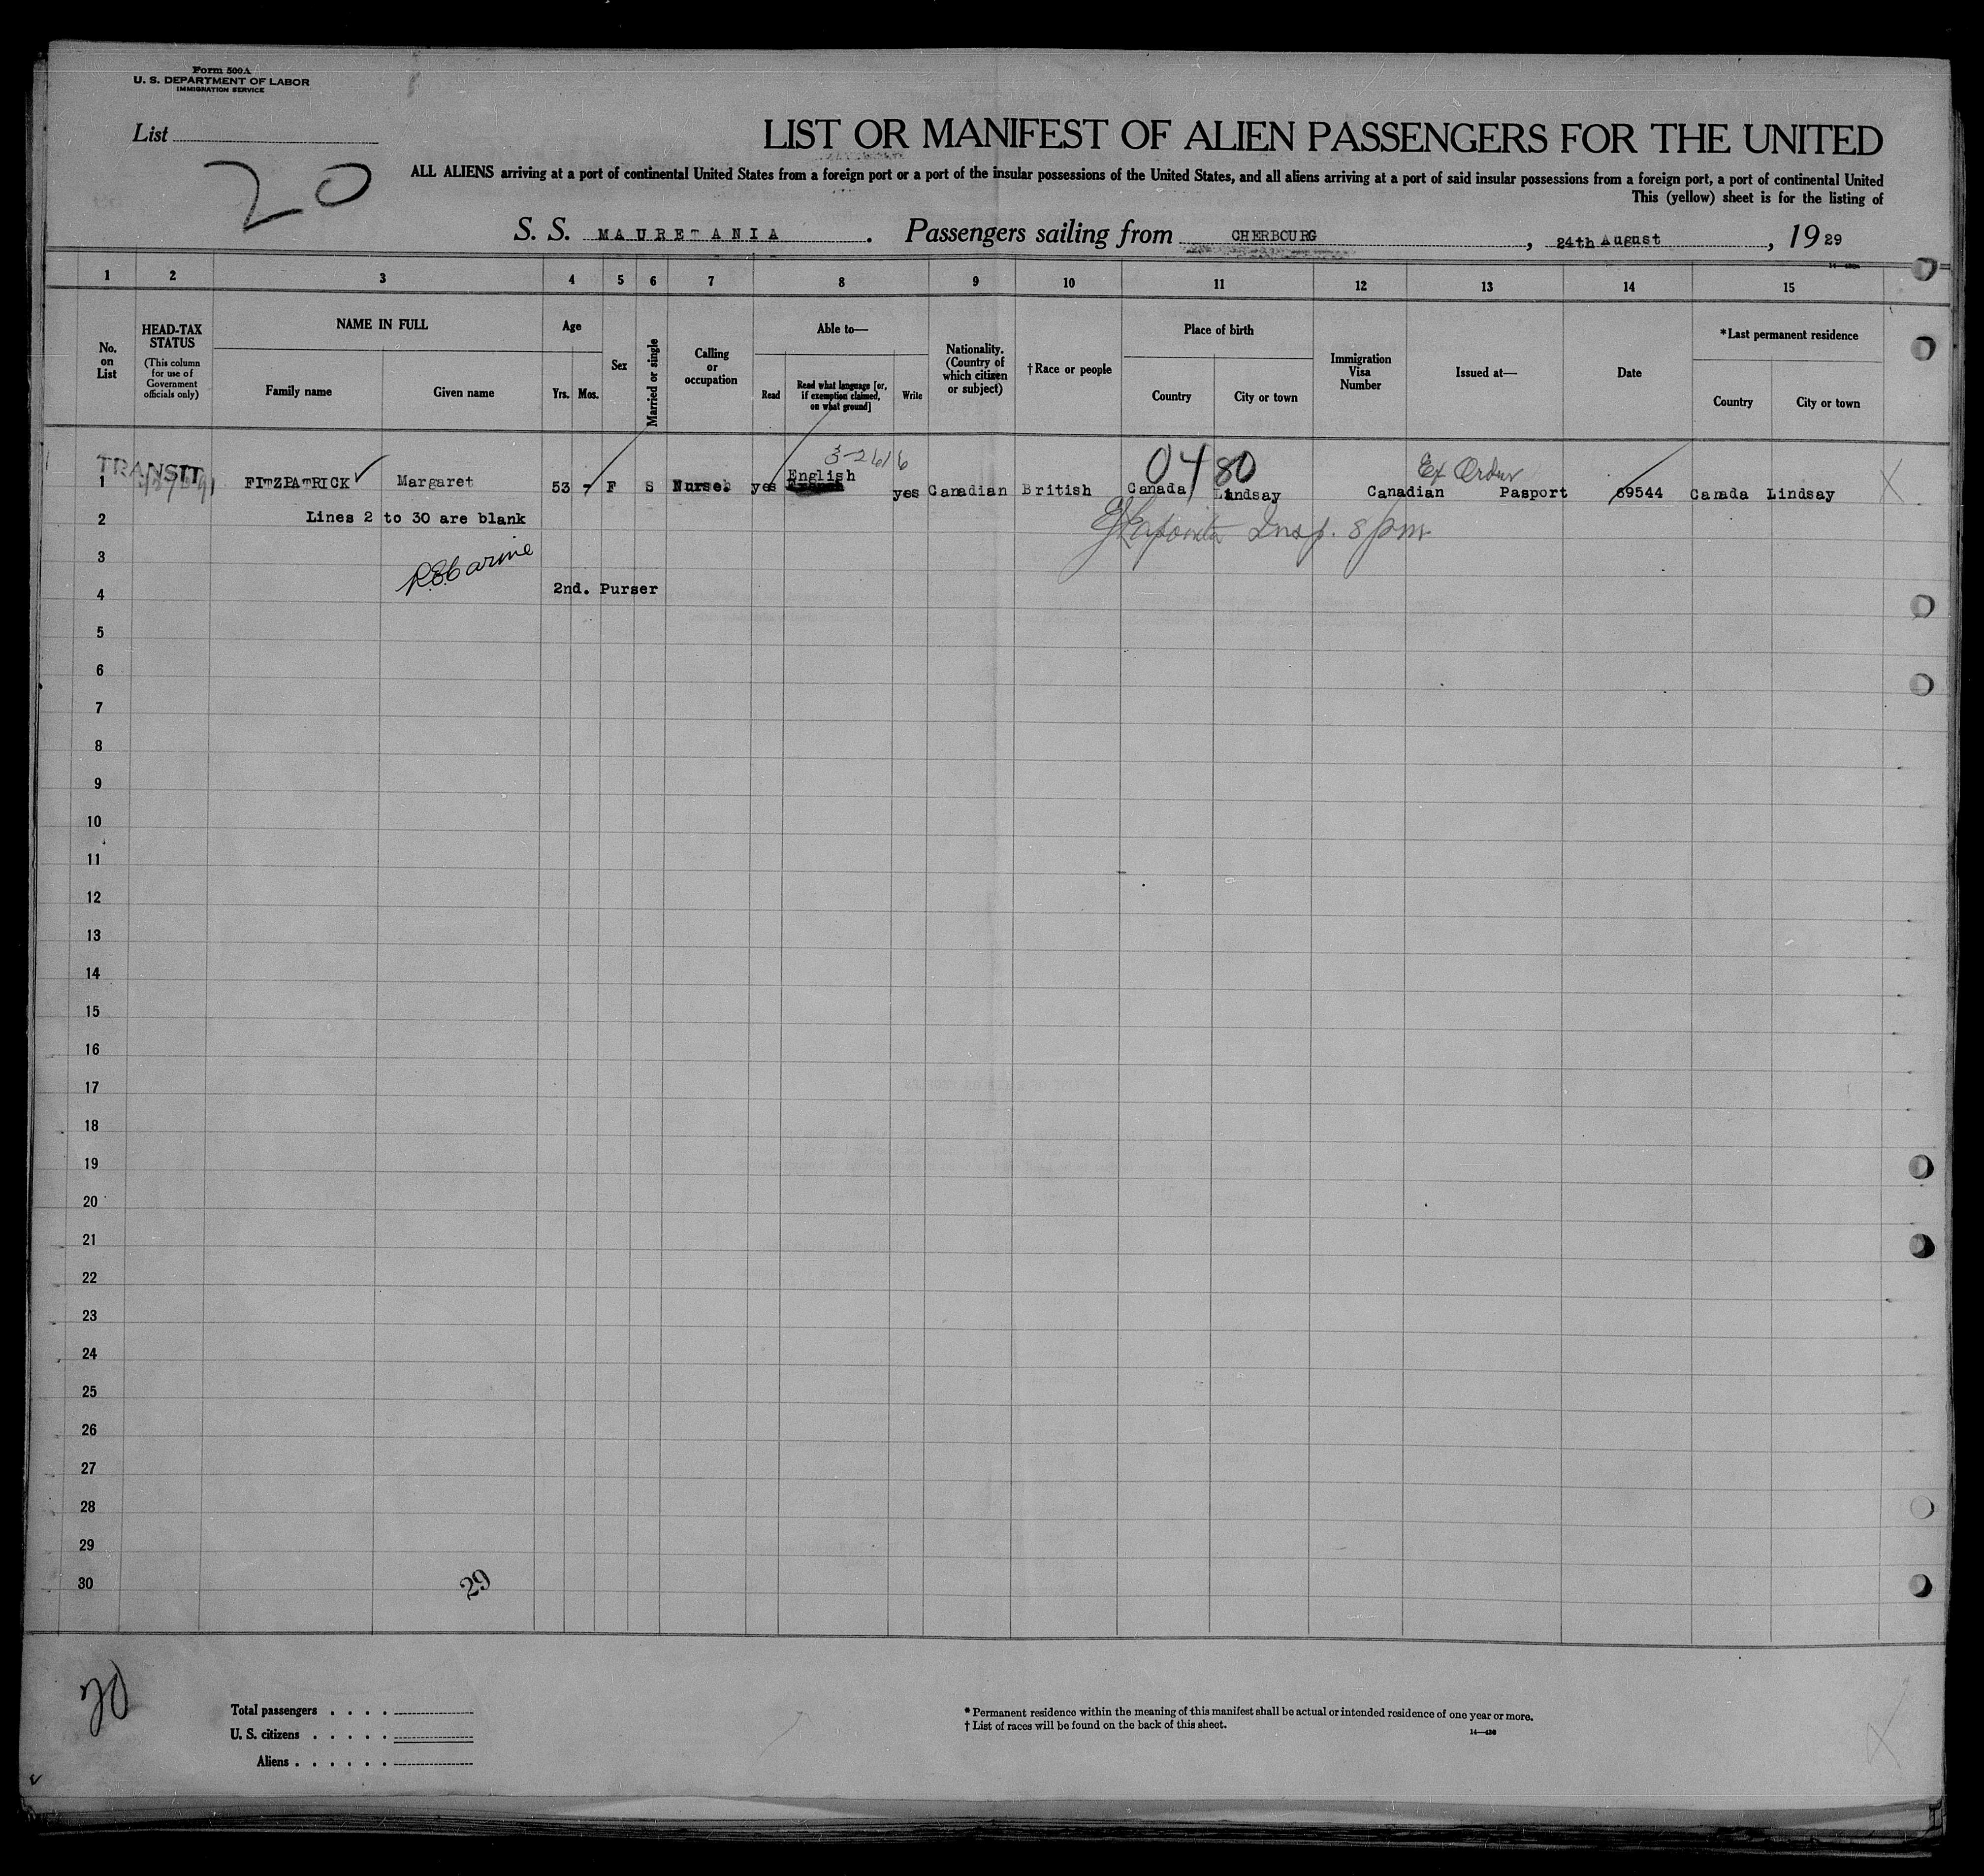 Form 500A
U. S. DEPARTMENT OF LABOR
IMMIGRATION SERVICE
List
20
LIST OR MANIFEST OF ALIEN PASSENGERS FOR THE UNITED
ALL ALIENS arriving at a port of continental United States from a foreign port or a port of the insular possessions of the United States, and all aliens arriving at a port of said insular possessions from a foreign port, a port of continental United
This (yellow) sheet is for the listing of
S. S. MAURETANIA. Passengers sailing from CHERBOURG, 24th August, 1929
1 2 3 4 5 6 7 8 9 10 11 12 13 14 15
No. on List
HEAD-TAX STATUS
(This column for use of Government officials only)
NAME IN FULL
Family name Given name
Age
Yrs. Mos.
Sex
Married or single
Calling or occupation
Able to—
Read
Read what language [or, if exemption claimed, on what ground]
Write
Nationality. (Country of which citizen or subject)
†Race or people
Place of birth
Country City or town
Immigration Visa Number
Issued at—
Date
*Last permanent residence
Country City or town
TRANSIT
3-2616
04 80
Ex Order
1 FITZPATRICK Margaret 53 - F S Nurse. yes English yes Canadian British Canada Lindsay Canadian Pasport 69544 Canada Lindsay X
2 Lines 2 to 30 are blank
Insp. 8 pm
3
4 2nd. Purser
5
6
7
8
9
10
11
12
13
14
15
16
17
18
19
20
21
22
23
24
25
26
27
28
29
30
29
20
Total passengers . . . .
U. S. citizens . . . . .
Aliens . . . . . .
* Permanent residence within the meaning of this manifest shall be actual or intended residence of one year or more.
† List of races will be found on the back of this sheet.